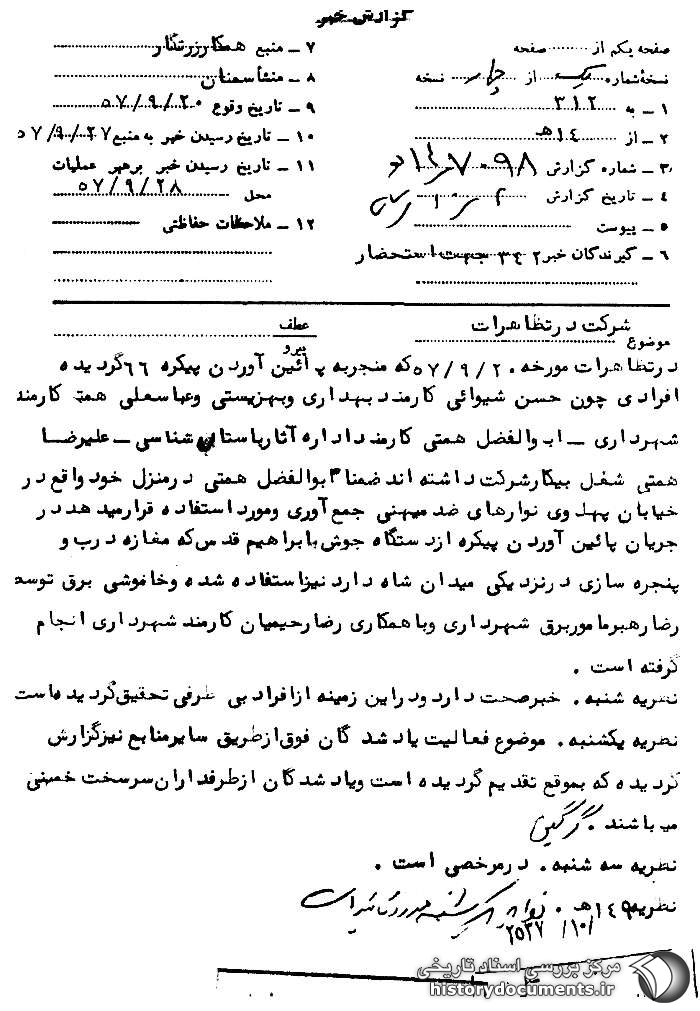 گزارش خبر
صفحه یکم از ........ صفحه
نسخه شماره یک از چهار نسخه
۱ ـ به ۳۱۲
۲ ـ از ۱۴هـ
۳ ـ شماره گزارش
۴ ـ تاریخ گزارش
۵ ـ پیوست
۶ ـ گیرندگان خبر ۳۴۲ جهت استحضار
۷ ـ منبع همکار رزرتگار
۸ ـ منشأ سمنان
۹ ـ تاریخ وقوع ۵۷/۹/۲۰
۱۰ ـ تاریخ رسیدن خبر به منبع ۵۷/۹/۲۷
۱۱ ـ تاریخ رسیدن خبر برهبر عملیات
محل ۵۷/۹/۲۸
۱۲ ـ ملاحظات حفاظتی
موضوع شرکت در تظاهرات
عطف
پیرو
در تظاهرات مورخه ۵۷/۹/۲۰ که منجر به پائین آوردن پیکره ۶۶ گردیده
افرادی چون حسن شیوائی کارمند بهداری وبهزیستی وعباسعلی همتی کارمند
شهرداری ـ ابوالفضل همتی کارمند اداره آثار باستان شناسی ـ علیرضا
همتی شغل بیکار شرکت داشته اند ضمنا ابوالفضل همتی در منزل خود واقع در
خیابان پهلوی نوارهای ضد میهنی جمع آوری ومورد استفاده قرار میدهد در
جریان پائین آوردن پیکره از دستگاه جوش بابراهیم قدس که مغازه درب و
پنجره سازی در نزدیکی میدان شاه دارد نیز استفاده شده وخاموشی برق توسط
رضا رهبر مامور برق شهرداری وباهمکاری رضا رحیمیان کارمند شهرداری انجام
گرفته است .
نظریه شنبه . خبر صحت دارد ودر این زمینه از افراد بی طرفی تحقیق گردیده است
نظریه یکشنبه . موضوع فعالیت یاد شدگان فوق از طریق سایر منابع نیز گزارش
گردیده که بموقع تقدیم گردیده است ویاد شدگان از طرفداران سرسخت خمینی
میباشند . گرگین
نظریه سه شنبه . در مرخصی است .
نظریه ۱۴هـ . نظریه یکشنبه مورد تائید است
۲۵۳۷/۱۰/
مرکز بررسی اسناد تاریخی
historydocuments.ir